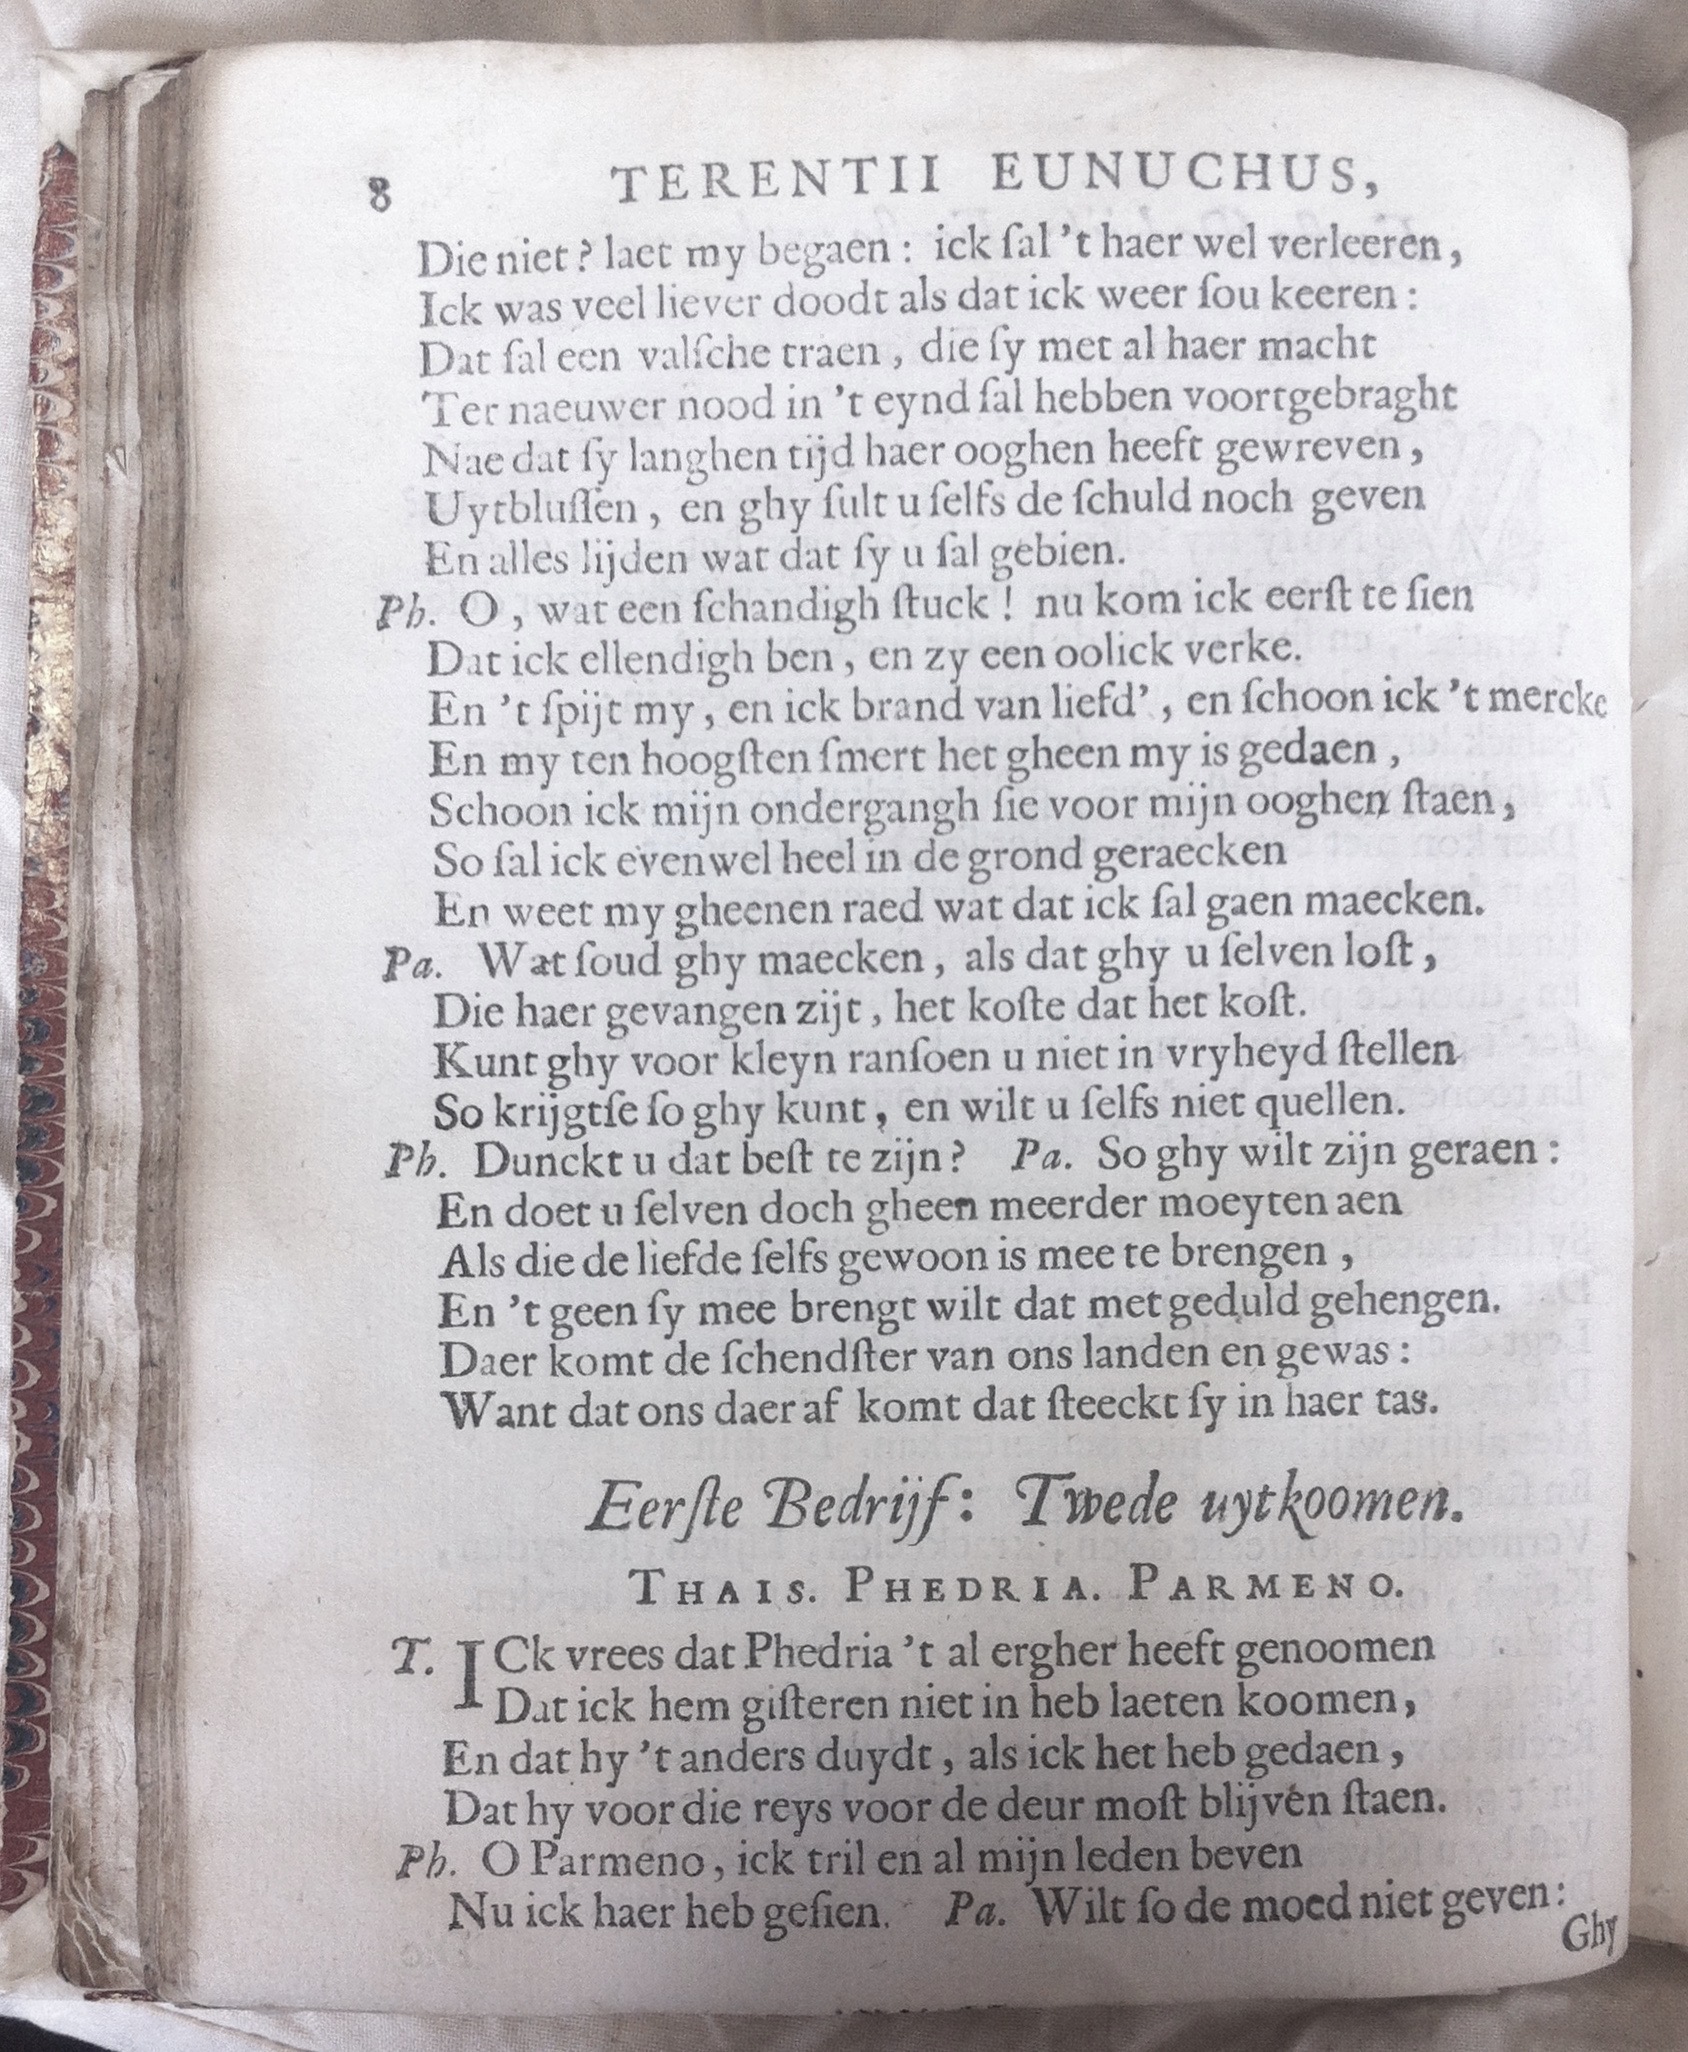 8 TERENTII EUNUCHUS,
Die niet? laet my begaen: ick ſal 't haer wel verleeren,
Ick was veel liever doodt als dat ick weer ſou keeren:
Dat ſal een valſche traen, die ſy met al haer macht
Ter naeuwer nood in 't eynd ſal hebben voortgebraght
Nae dat ſy langhen tijd haer ooghen heeft gewreven,
Uytbluſſen, en ghy ſult u ſelfs de ſchuld noch geven
En alles lijden wat dat ſy u ſal gebien.
Ph. O, wat een ſchandigh ſtuck! nu kom ick eerſt te ſien
Dat ick ellendigh ben, en zy een oolick verke.
En 't ſpijt my, en ick brand van liefd', en ſchoon ick 't mercke
En my ten hoogſten ſmert het gheen my is gedaen,
Schoon ick mijn ondergangh ſie voor mijn ooghen ſtaen,
So ſal ick evenwel heel in de grond geraecken
En weet my gheenen raed wat dat ick ſal gaen maecken.
Pa. Wat ſoud ghy maecken, als dat ghy u ſelven loſt,
Die haer gevangen zijt, het koſte dat het koſt.
Kunt ghy voor kleyn ranſoen u niet in vryheyd ſtellen
So krijgtſe ſo ghy kunt, en wilt u ſelfs niet quellen.
Ph. Dunckt u dat beſt te zijn? Pa. So ghy wilt zijn geraen:
En doet u ſelven doch gheen meerder moeyten aen
Als die de liefde ſelfs gewoon is mee te brengen,
En 't geen ſy mee brengt wilt dat met geduld gehengen.
Daer komt de ſchendſter van ons landen en gewas:
Want dat ons daer af komt dat ſteeckt ſy in haer tas.
Eerſte Bedrijf: Twede uytkoomen.
THAIS. PHEDRIA. PARMENO.
T. ICk vrees dat Phedria 't al ergher heeft genoomen
Dat ick hem giſteren niet in heb laeten koomen,
En dat hy 't anders duydt, als ick het heb gedaen,
Dat hy voor die reys voor de deur moſt blijven ſtaen.
Ph. O Parmeno, ick tril en al mijn leden beven
Nu ick haer heb geſien. Pa. Wilt ſo de moed niet geven:
Ghy